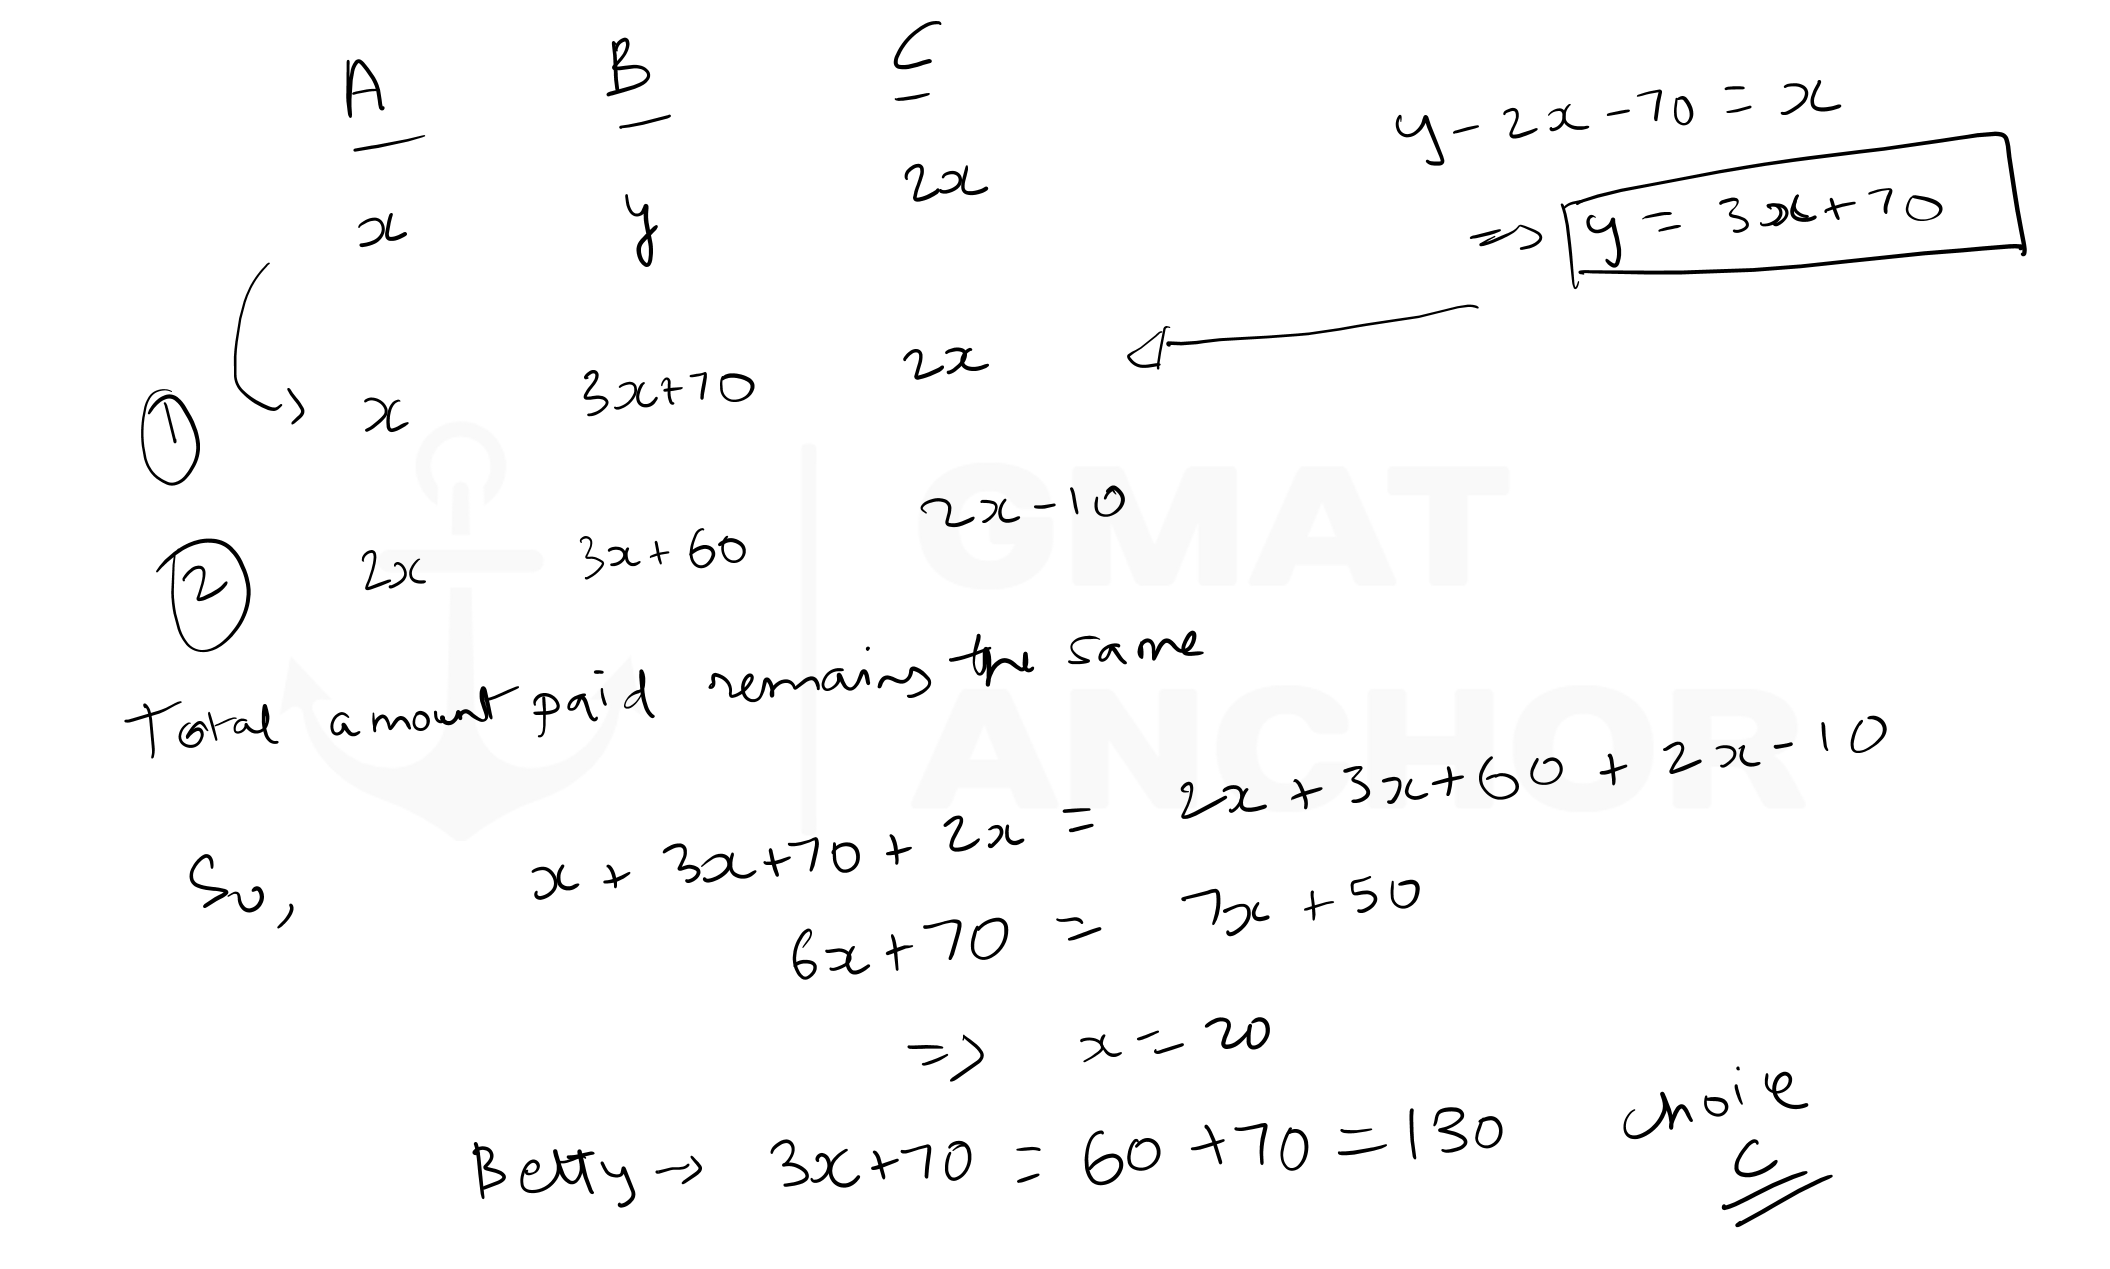 A B C
x y 2x
y - 2x - 70 = x
=> y = 3x + 70
① x 3x+70 2x
② 2x 3x+60 2x-10
Total amount paid remains the same
So, x + 3x+70 + 2x = 2x + 3x+60 + 2x-10
6x+70 = 7x+50
=> x = 20
Betty → 3x+70 = 60+70 = 130
choice
C
GMAT
ANCHOR